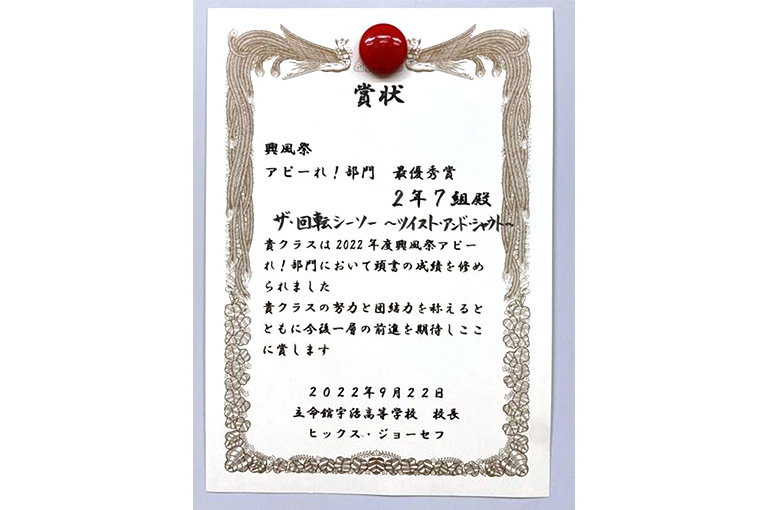 賞状
興風祭
アピーれ！部門　最優秀賞
2年7組殿
ザ・回転シーソー ～ツイスト・アンド・シャウト～
貴クラスは2022年度興風祭アピー
れ！部門において頭書の成績を修め
られました
貴クラスの努力と団結力を称えると
ともに今後一層の前進を期待しここ
に賞します
２０２２年９月２２日
立命館宇治高等学校　校長
ヒックス・ジョーセフ